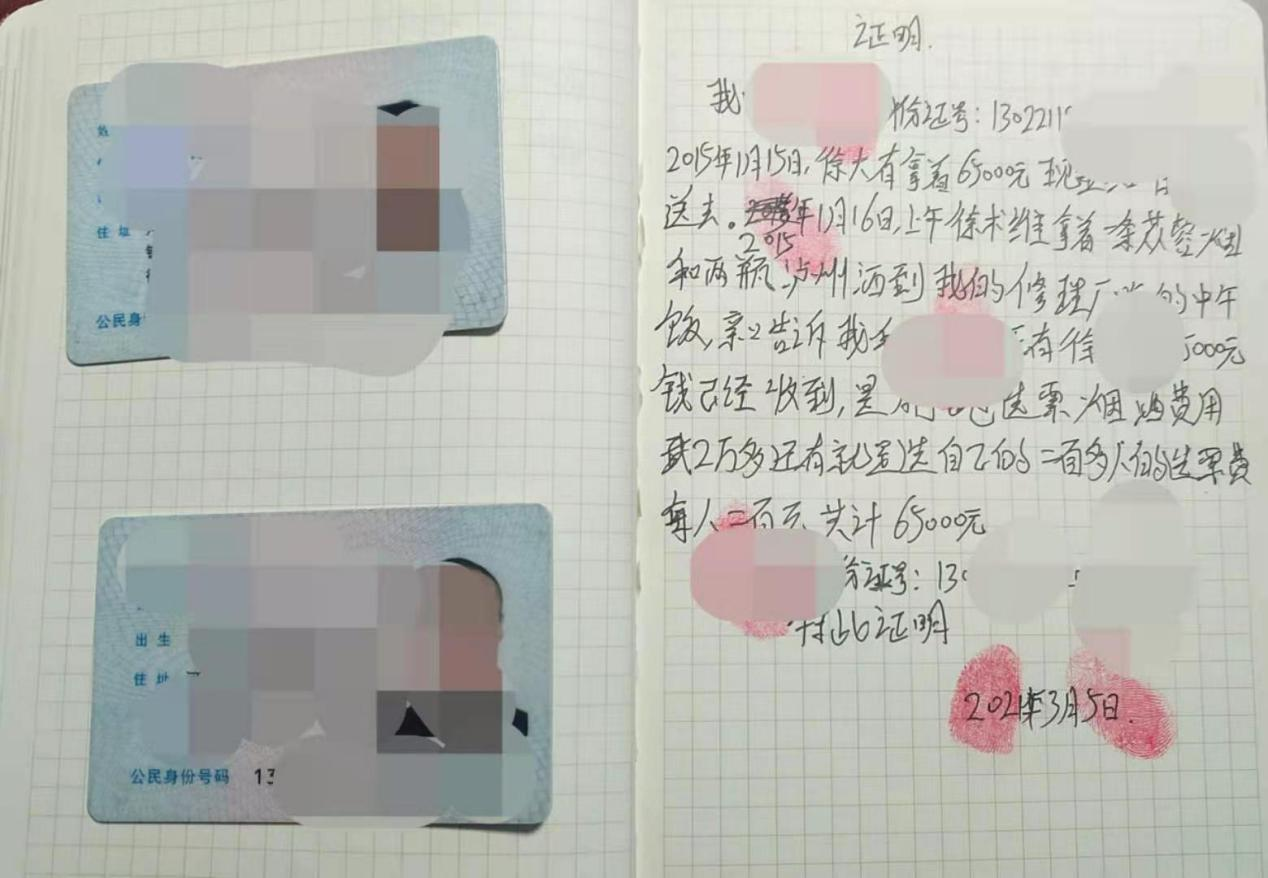 住址
公民身
出生
住址
公民身份号码 13
证明.
我 份证号: 1302211
2015年11月15日, 徐大有拿着65000元现
送去。年11月16日,上午徐术维拿着一条苁蓉烟
2015
和两瓶泸州酒到我的修理厂 的中午
饭, 亲口告诉我 有徐 5000元
钱已经收到, 是 选票烟酒费用
或2万多还有就是选自己的二百多人的选票费
每人二百元 共计65000元
份证号: 13
特此证明
2021年3月5日.